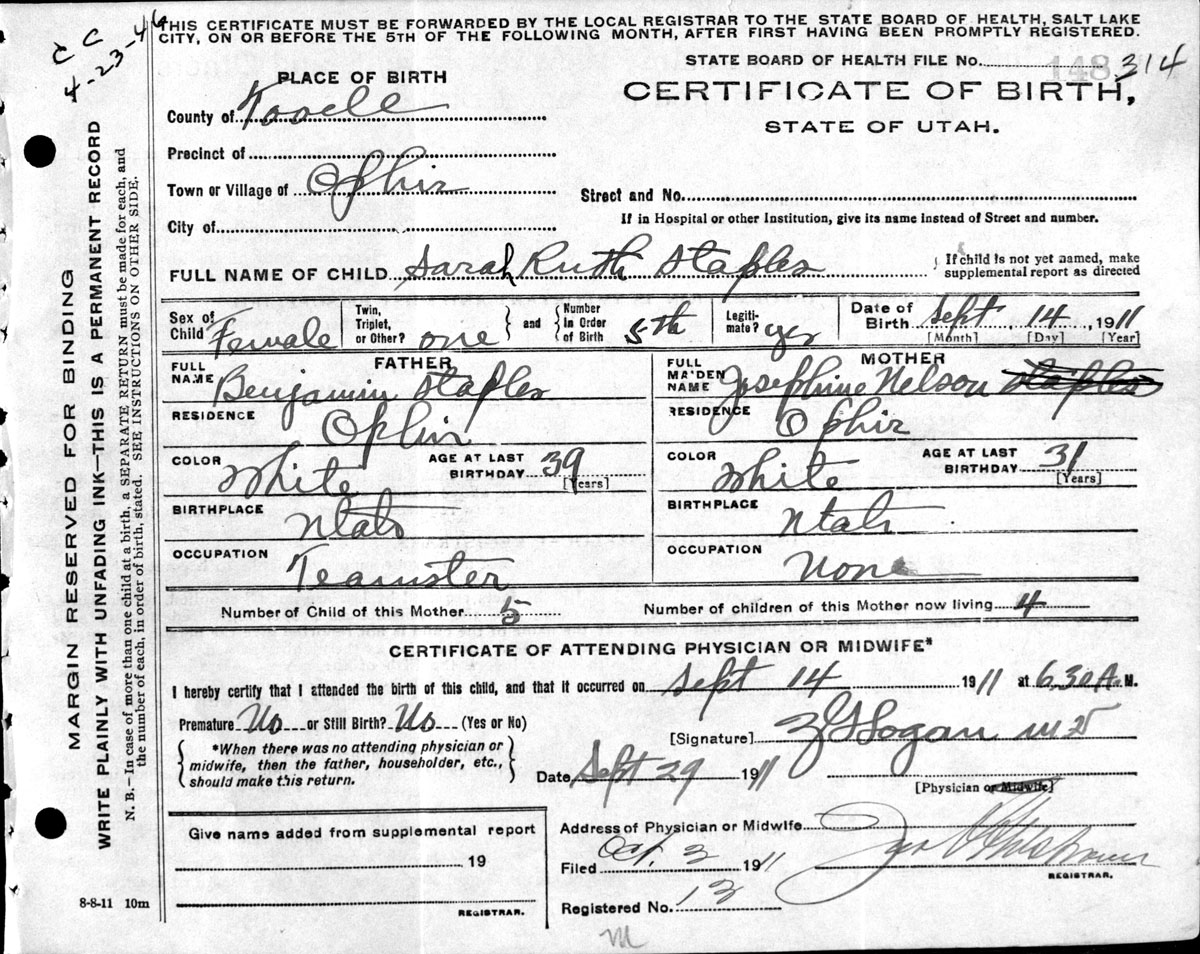 C C
4-23-46
THIS CERTIFICATE MUST BE FORWARDED BY THE LOCAL REGISTRAR TO THE STATE BOARD OF HEALTH, SALT LAKE
CITY, ON OR BEFORE THE 5TH OF THE FOLLOWING MONTH, AFTER FIRST HAVING BEEN PROMPTLY REGISTERED.
STATE BOARD OF HEALTH FILE No. 148 314
PLACE OF BIRTH
CERTIFICATE OF BIRTH,
STATE OF UTAH.
County of Tooele
Precinct of
Town or Village of Ophir
Street and No.
If in Hospital or other Institution, give its name instead of Street and number.
City of
FULL NAME OF CHILD Sarah Ruth Staples { If child is not yet named, make
supplemental report as directed
Sex of Child Female
Twin, Triplet, or Other? one } and { Number in Order of Birth 5th
Legiti-mate? yes
Date of Birth Sept 14, 1911
[Month] [Day] [Year]
FATHER
FULL NAME Benjamin Staples
RESIDENCE Ophir
COLOR White AGE AT LAST BIRTHDAY 39 [Years]
BIRTHPLACE Utah
OCCUPATION Teamster
MOTHER
FULL MAIDEN NAME Josephine Nelson Staples
RESIDENCE Ophir
COLOR White AGE AT LAST BIRTHDAY 31 [Years]
BIRTHPLACE Utah
OCCUPATION None
Number of Child of this Mother 5 Number of children of this Mother now living 4
CERTIFICATE OF ATTENDING PHYSICIAN OR MIDWIFE*
I hereby certify that I attended the birth of this child, and that it occurred on Sept 14 1911 at 6.30 A. M.
Premature No or Still Birth? No (Yes or No)
{ *When there was no attending physician or
midwife, then the father, householder, etc.,
should make this return. }
[Signature] MD
Date Sept 29 1911
[Physician or Midwife]
Give name added from supplemental report
19
REGISTRAR.
Address of Physician or Midwife
Filed Oct. 3 1911
REGISTRAR.
Registered No. 13
8-8-11 10m
M
MARGIN RESERVED FOR BINDING
WRITE PLAINLY WITH UNFADING INK—THIS IS A PERMANENT RECORD
N. B.—In case of more than one child at a birth, a SEPARATE RETURN must be made for each, and
the number of each, in order of birth, stated. SEE INSTRUCTIONS ON OTHER SIDE.